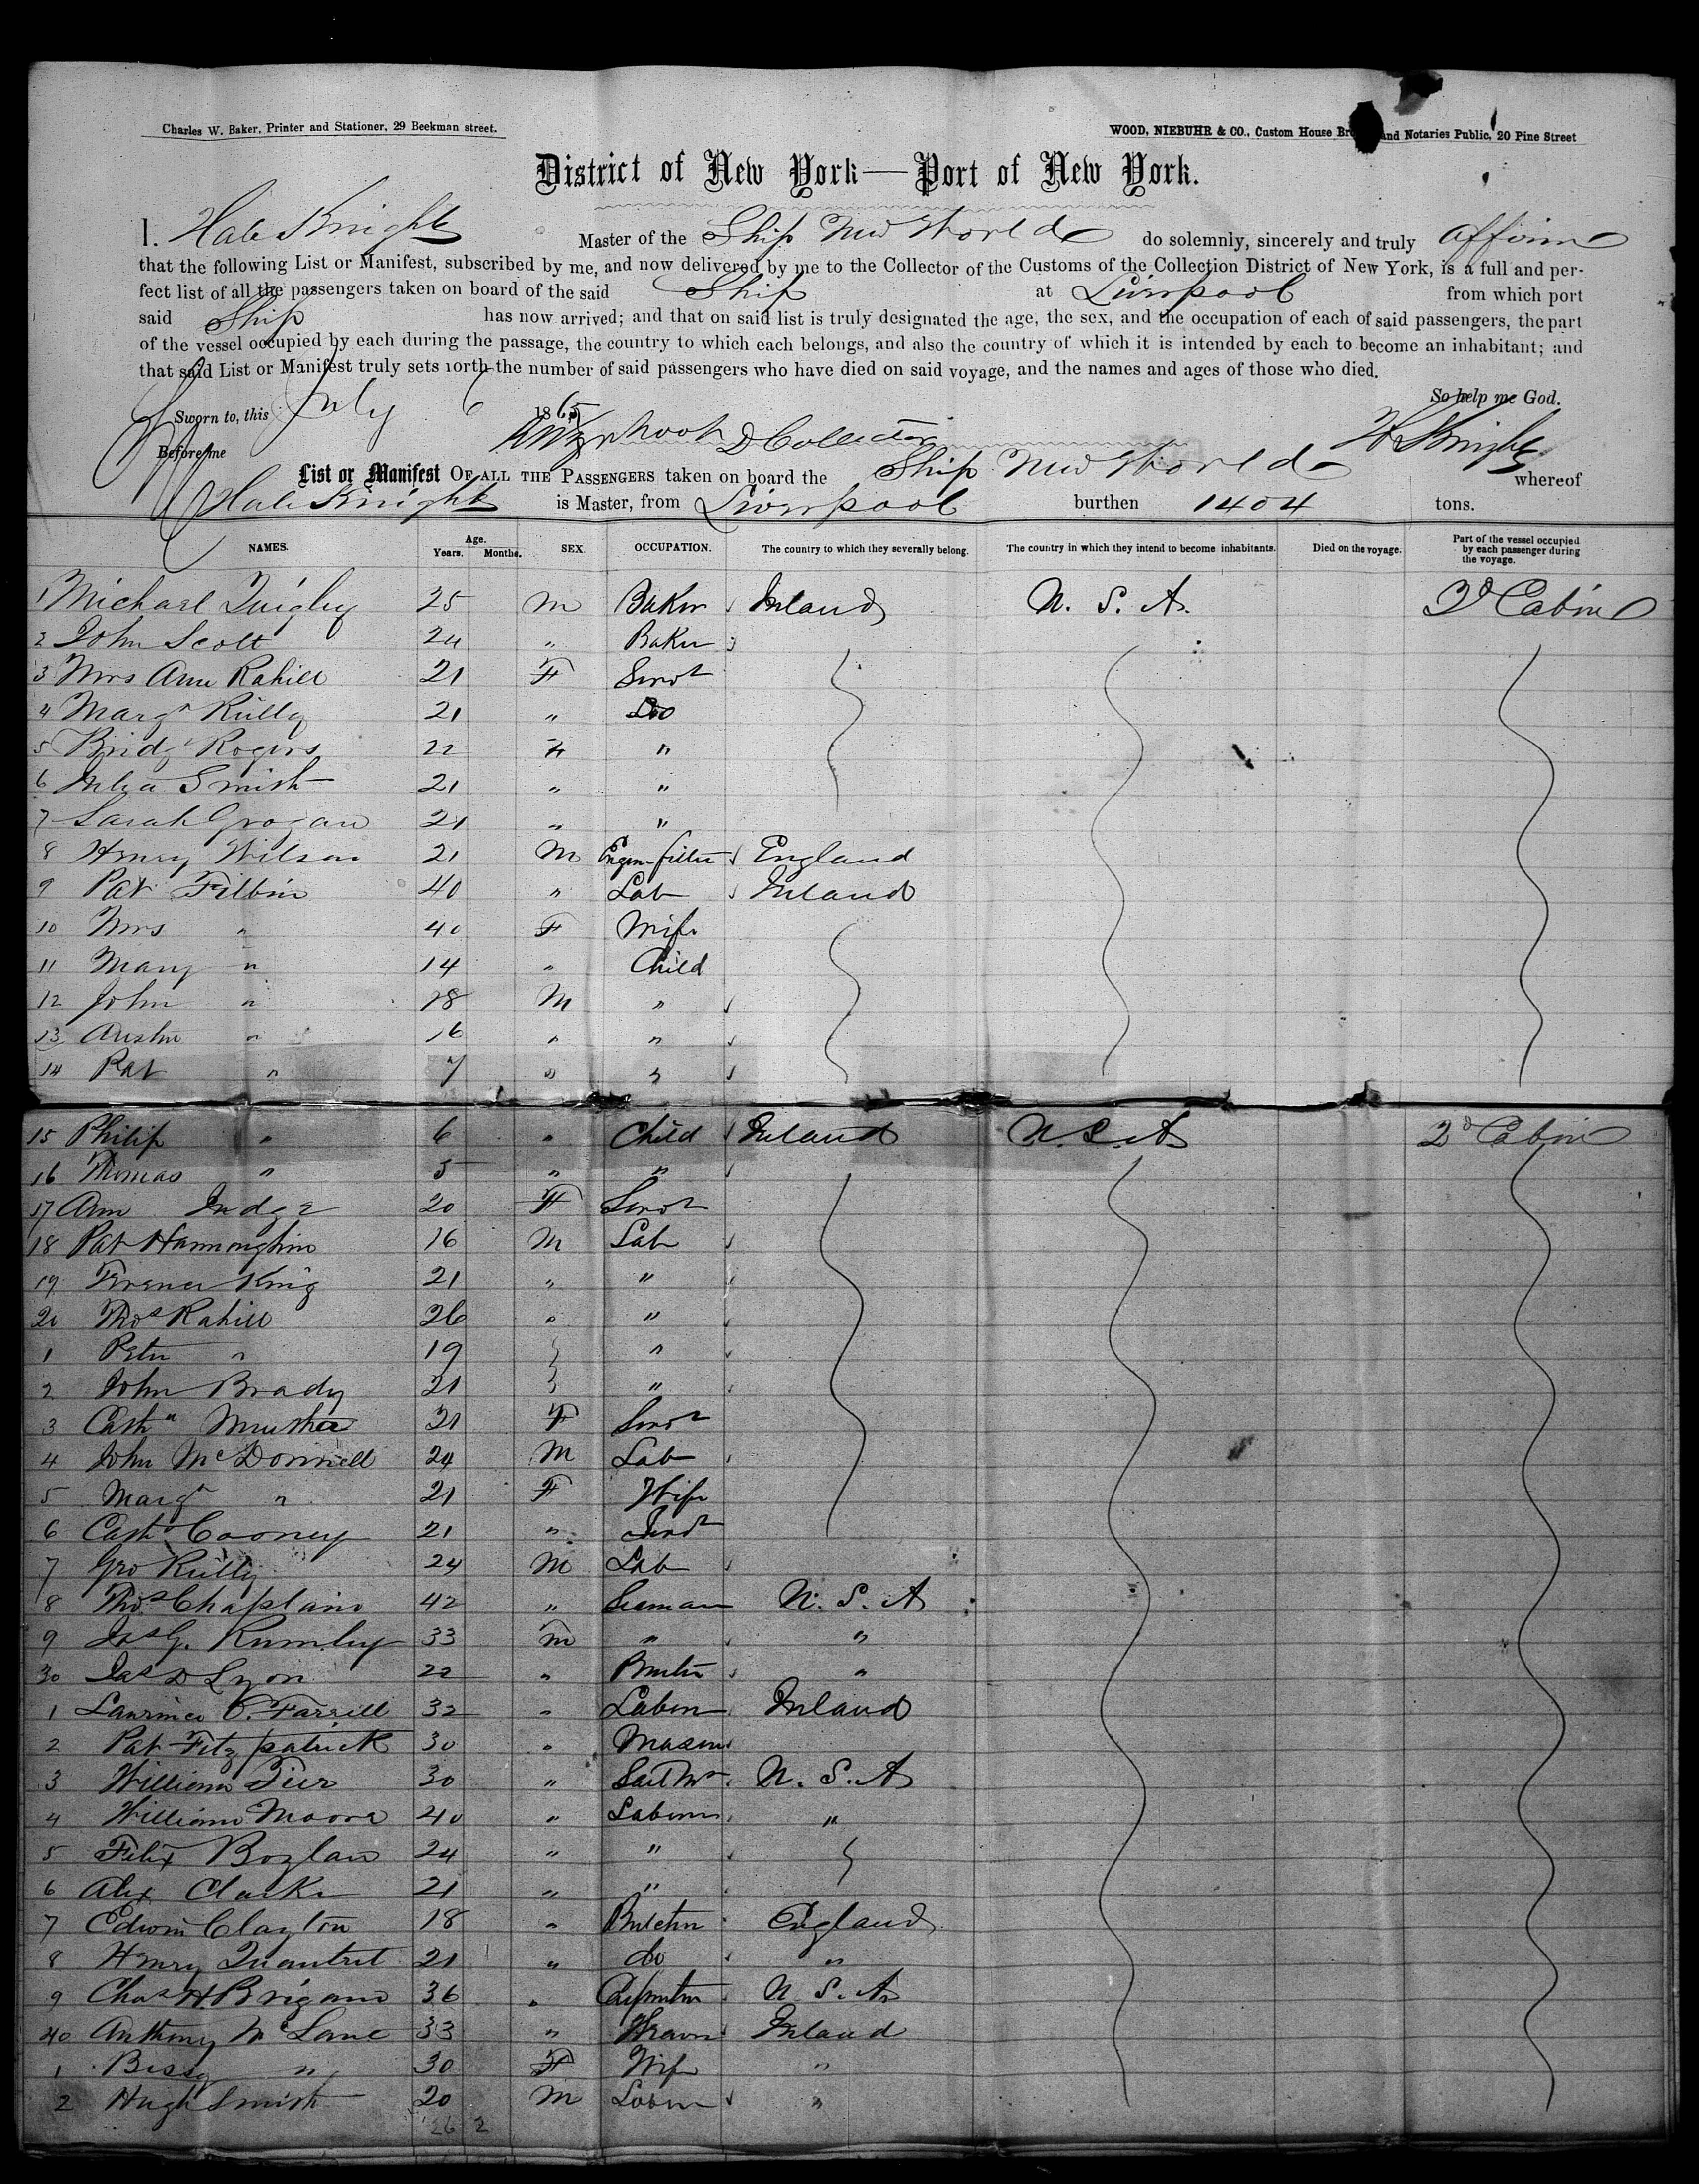 Charles W. Baker, Printer and Stationer, 29 Beekman street.
WOOD, NIEBUHR & CO., Custom House Br and Notaries Public, 20 Pine Street
District of New York—Port of New York.
I. Hale Knight Master of the Ship New World do solemnly, sincerely and truly affirm
that the following List or Manifest, subscribed by me, and now delivered by me to the Collector of the Customs of the Collection District of New York, is a full and per-
fect list of all the passengers taken on board of the said Ship at Liverpool from which port
said Ship has now arrived; and that on said list is truly designated the age, the sex, and the occupation of each of said passengers, the part
of the vessel occupied by each during the passage, the country to which each belongs, and also the country of which it is intended by each to become an inhabitant; and
that said List or Manifest truly sets forth the number of said passengers who have died on said voyage, and the names and ages of those who died.
So help me God.
Sworn to, this July 6 1865
Before me D Collector H Knight
List or Manifest OF ALL THE PASSENGERS taken on board the Ship New World whereof
Hale Knight is Master, from Liverpool burthen 1404 tons.
NAMES. Age. Years. Months. SEX. OCCUPATION. The country to which they severally belong. The country in which they intend to become inhabitants. Died on the voyage. Part of the vessel occupied by each passenger during the voyage.
1 Michael Quigley 25 M Baker Ireland U. S. A. 2d Cabin
2 John Scott 24 " Baker
3 Mrs Ann Rahill 21 F Servt
4 Margt Reilly 21 " Do
5 Bridgt Rogers 22 F "
6 Julia Smith 21 " "
7 Sarah Grogan 21 " "
8 Henry Wilson 21 M Engine fitter England
9 Pat Filbin 40 " Lab Ireland
10 Mrs " 40 F Wife
11 Mary " 14 " Child
12 John " 18 M "
13 Austin " 16 " "
14 Pat " 7 " "
15 Philip " 6 " Child Ireland U. S. A. 2d Cabin
16 Thomas " 5 " "
17 Ann Judge 20 F Servt
18 Pat 16 M Lab
19 Terence King 21 " "
20 Thos Rahill 26 " "
1 Peter " 19 "
2 John Brady 21 "
3 Cathn 21 F Servt
4 John McDonnell 24 M Lab
5 Margt " 21 F Wife
6 Cathn Cooney 21 " Servt
7 Geo Reilly 24 M Lab
8 Thos Chaplain 42 " Seaman U. S. A
9 Jas G. Rumley 33 M " "
30 Jas D Lyon 22 " "
1 Lawrence O. Farrell 32 " Labor Ireland
2 Pat Fitzpatrick 30 " Mason
3 William Tier 30 " U. S. A
4 William Moore 40 " Laborer "
5 Felix Boylan 24 " "
6 Alex Clarke 21 " "
7 Edwin Clayton 18 " Butcher England
8 Henry Quantret 21 " do "
9 Chas H Brigans 36 " Carpenter U. S. A.
40 Anthony McLane 33 " Weaver Ireland
1 Bessy " 30 F Wife "
2 Hugh Smith 20 M Labor "
26 2